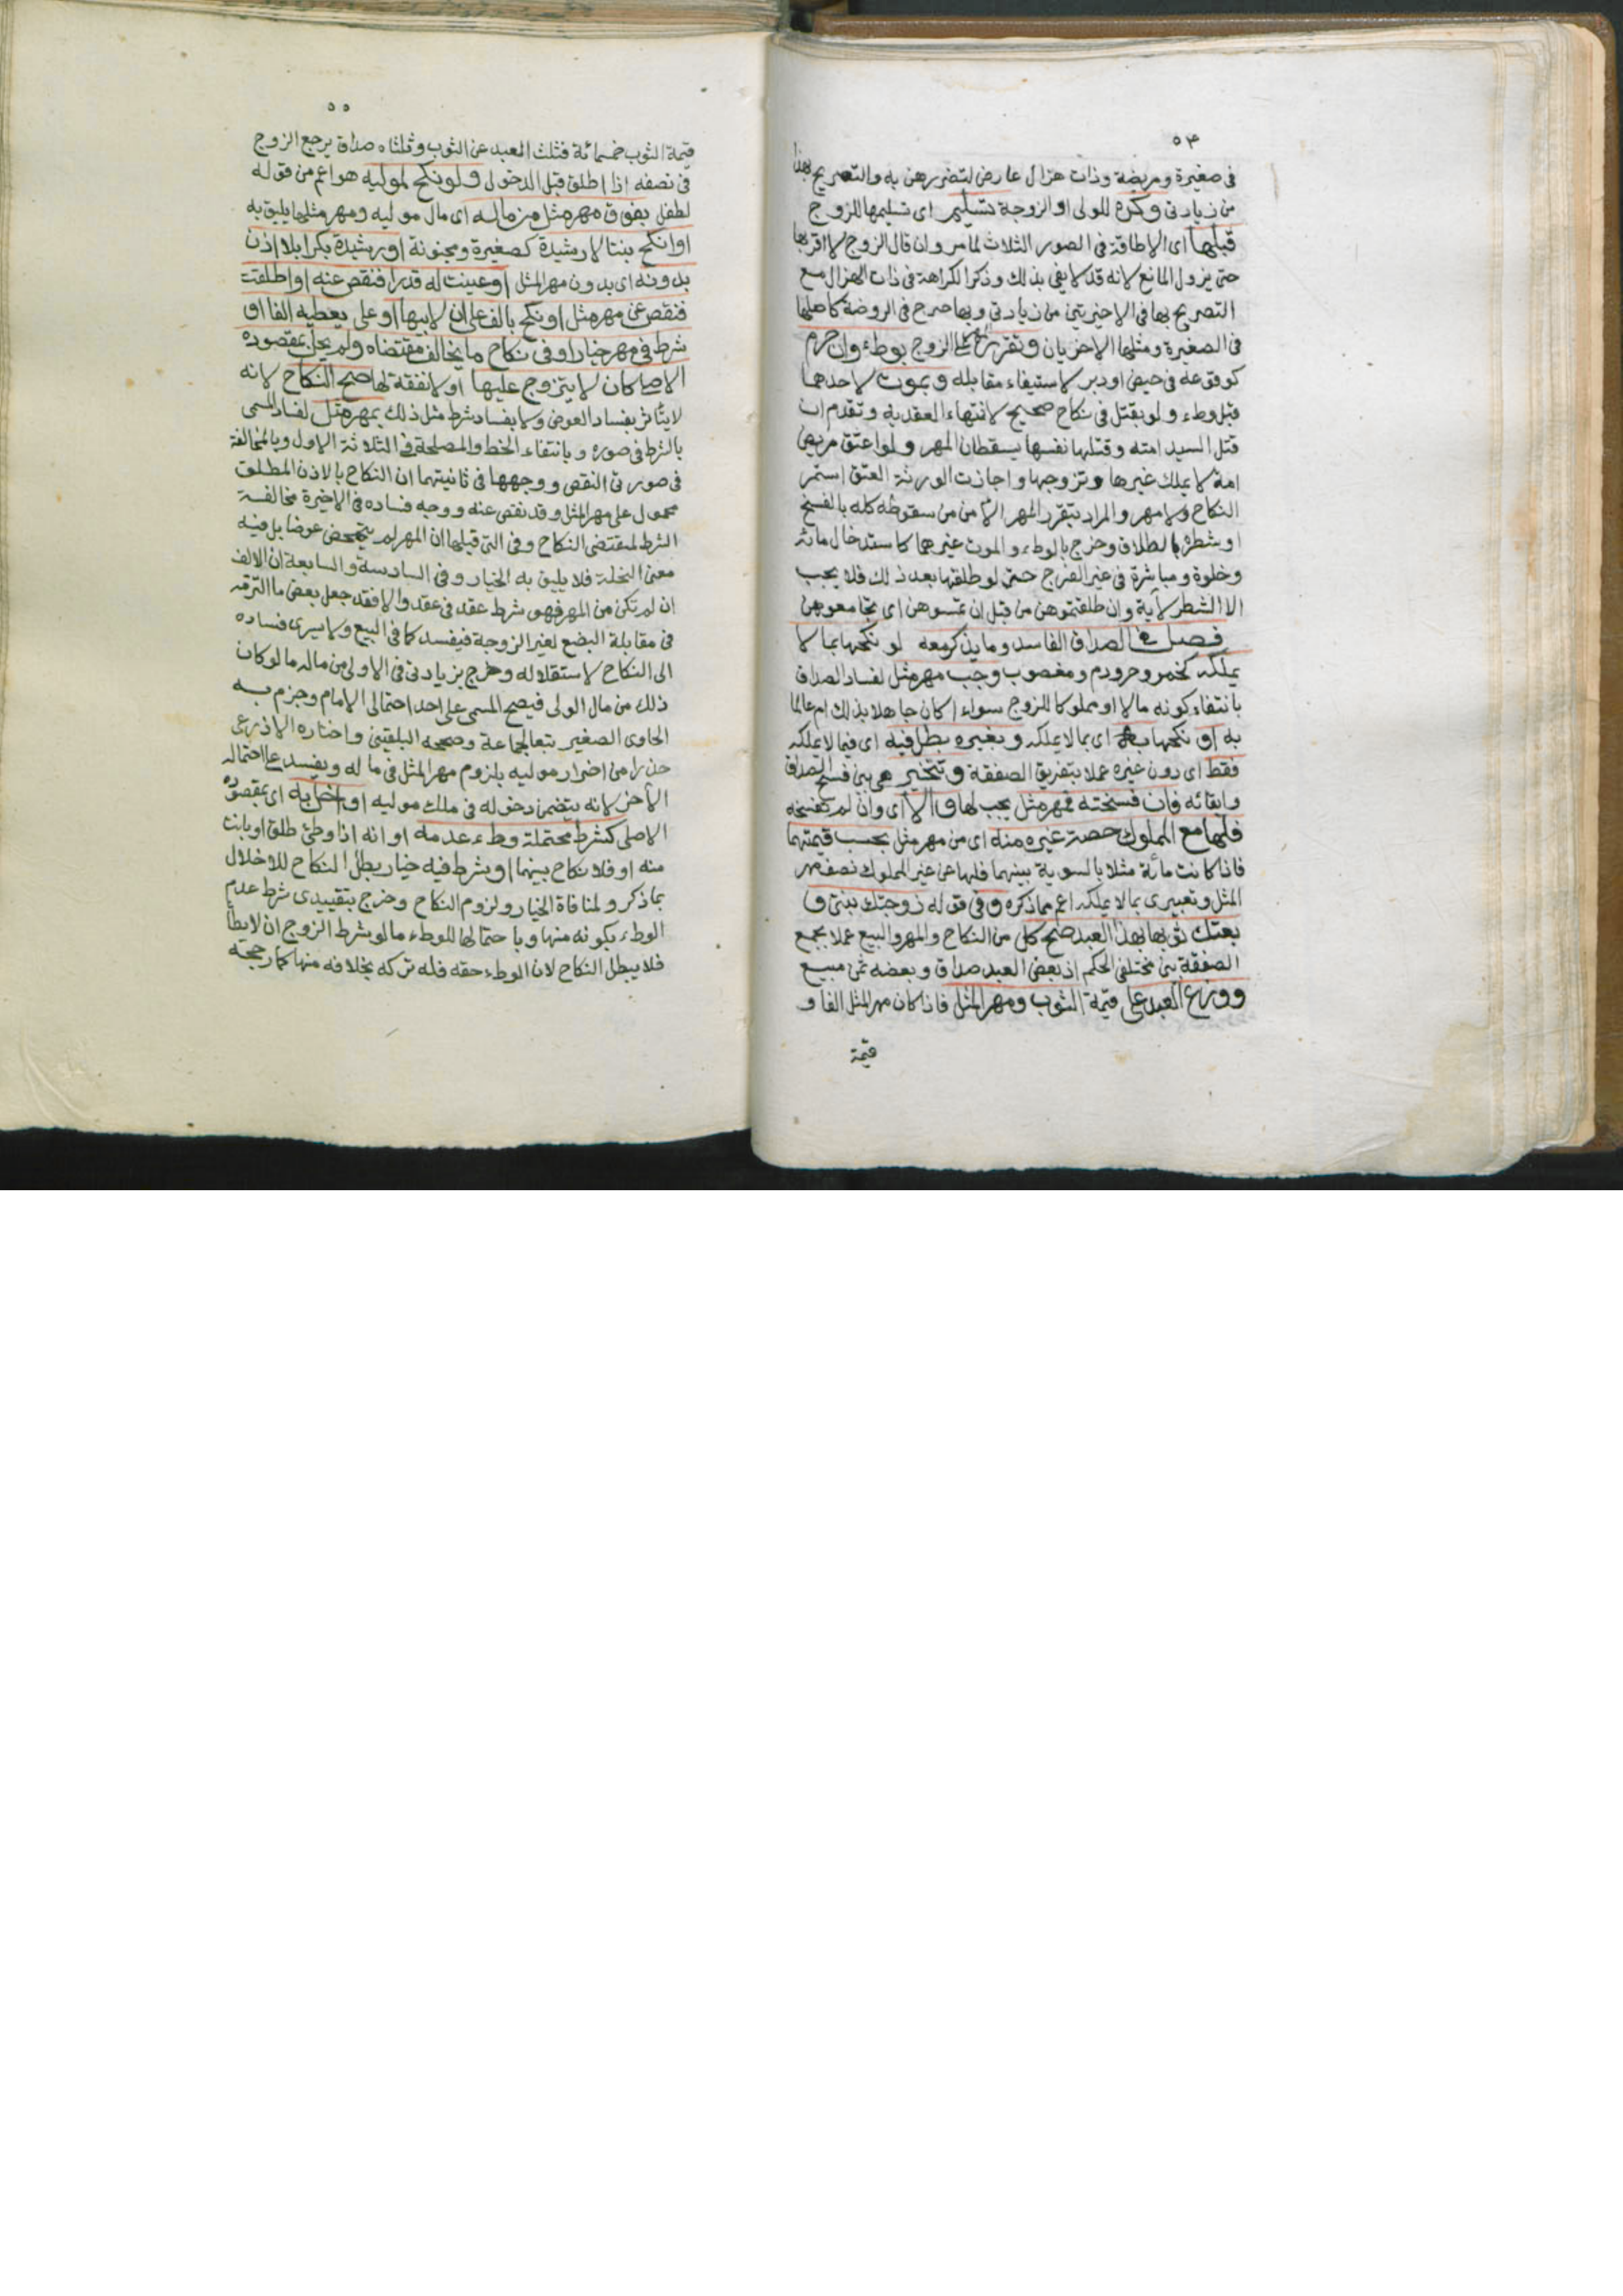 ٥٤
فى صغيرة ومريضة وذات هزال عارض لتضررهن به والتصريح بهذا
من زيادتى وكره للولى او الزوجة تسليم اى تسليمها للزوج
قبلها اى الاطاقة فى الصور الثلاث لما مر وان قال الزوج لا اقربها
حتى يزول المانع لانه قد لا يفى بذلك وذكر الكراهة فى ذات الهزال مع
التصريح بها فى الاخيرتين من زيادتى وبها صرح فى الروضة كاصلها
فى الصغيرة ومثلها الاخريان وتقرر على الزوج بوطء وان حرم
كوقوعه فى حيض او دبر لاستيفاء مقابله وبموت لاحدهما
قبل وطء ولو بقتل فى نكاح صحيح لانتهاء العقد به وتقدم ان
قتل السيد امته وقتلها نفسها يسقطان المهر ولو اعتق مريض
امة لا يملك غيرها وتزوجها واجازت الورثة العتق استمر
النكاح ولا مهر والمراد بتقرر المهر الأمن من سقوطه كله بالفسخ
او شطره بالطلاق وخرج بالوطء والموت غيرهما كاستدخال مائه
وخلوة ومباشرة فى غير الفرج حتى لو طلقها بعد ذلك فلا يجب
الا الشطر لآية وان طلقتموهن من قبل ان تمسوهن اى تجامعوهن
فصل فى الصداق الفاسد وما يذكر معه لو نكحها بما لا
يملكه كخمر وحر ودم ومغصوب وجب مهر مثل لفساد الصداق
بانتفاء كونه مالا او مملوكا للزوج سواء اكان جاهلا بذلك ام عالما
به او نكحها به اى بما لا يملكه وبغيره بطل فيه اى فيما لا يملكه
فقط اى دون غيره عملا بتفريق الصفقة وتتخير هى بين فسخ الصداق
وابقائه فان فسخته فمهر مثل يجب لها والا أى وان لم تفسخه
فلها مع المملوك حصة غيره منه اى من مهر مثل بحسب قيمتهما
فاذا كانت مائة مثلا بالسوية بينهما فلها عن غير المملوك نصف مهر
المثل وتعبيرى بما لا يملكه اعم مما ذكره وفى قوله زوجتك بنتى و
بعتك ثوبها بهذا العبد صح كل من النكاح والمهر والبيع عملا بجمع
الصفقة بين مختلفى الحكم اذ بعض العبد صداق وبعضه ثمن مبيع
ووزع العبد على قيمة الثوب ومهر المثل فاذا كان مهر المثل الفا و
قيمة
٥٥
قيمة الثوب خمسمائة فثلث العبد عن الثوب وثلثاه صداق يرجع الزوج
فى نصفه اذا طلق قبل الدخول ولو نكح لموليه هو اعم من قوله
لطفل بفوق مهر مثل من ماله اى مال موليه ومهر مثلها يليق به
او انكح بنتا لا رشيدة كصغيرة ومجنونة او رشيدة بكرا بلا اذن
بدونه اى بدون مهر المثل او عينت له قدرا فنقص عنه او اطلقت
فنقص عن مهر مثل او نكح بالف على ان لابيها او على يعطيه الفا او
شرط فى مهر خيارا وفى نكاح ما يخالف مقتضاه ولم يخل بمقصوده
الاصلى كان لا يتزوج عليها او لا نفقة لها صح النكاح لانه
لا يتأثر بفساد العوض ولا بفساد شرط مثل ذلك بمهر مثل لفساد المسمى
بالشرط فى صوره وبانتفاء الحظ والمصلحة فى الثلاثة الاول وبالمخالفة
فى صورتى النقص ووجهها فى ثانيتهما ان النكاح بالاذن المطلق
محمول على مهر المثل وقد نقص عنه ووجه فساده فى الاخيرة مخالفة
الشرط لمقتضى النكاح وفى التى قبلها ان المهر لم يتمحض عوضا بل فيه
معنى النحلة فلا يليق به الخيار وفى السادسة والسابعة ان الالف
ان لم تكن من المهر فهو شرط عقد فى عقد والا فقد جعل بعض ما التزمه
فى مقابلة البضع لغير الزوجة فيفسد كما فى البيع ولا يسرى فساده
الى النكاح لاستقلاله وخرج بزيادتى فى الاولى من ماله ما لو كان
ذلك من مال الولى فيصح المسمى على احد احتمالى الامام وجزم به
الحاوى الصغير تبعا لجماعة وصححه البلقينى واختاره الاذرعى
حذرا من اضرار موليه بلزوم مهر المثل فى ماله ويفسد على احتماله
الأخر لانه يتضمن دخوله فى ملك موليه او اخل به اى بمقصوده
الاصلى كشرط محتملة وطء عدمه او انه اذا وطئ طلق او بانت
منه او فلا نكاح بينهما او شرط فيه خيار بطل النكاح للاخلال
بما ذكر ولمنافاة الخيار ولزوم النكاح وخرج بتقييدى شرط عدم
الوطء بكونه منها وباحتمالها للوطء ما لو شرط الزوج ان لا يطأ
فلا يبطل النكاح لان الوطء حقه فله تركه بخلافه منها كما رجحه